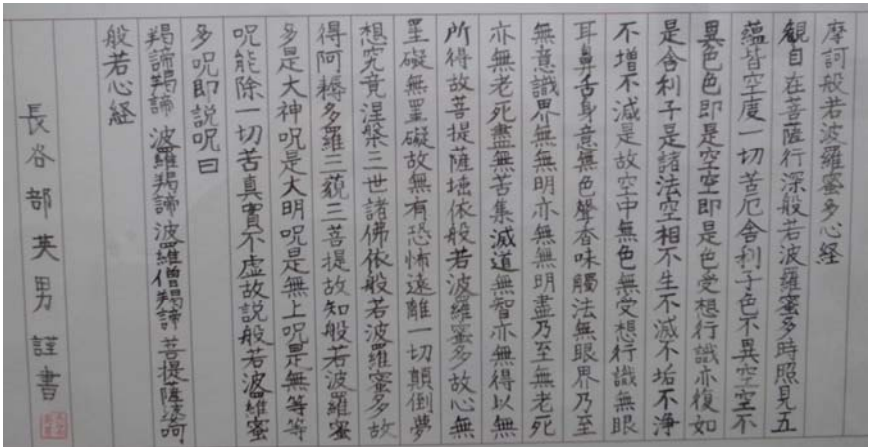 摩訶般若波羅蜜多心経
観自在菩薩行深般若波羅蜜多時照見五
蘊皆空度一切苦厄舎利子色不異空空不
異色色即是空空即是色受想行識亦復如
是舎利子是諸法空相不生不滅不垢不浄
不増不減是故空中無色無受想行識無眼
耳鼻舌身意無色聲香味觸法無眼界乃至
無意識界無無明亦無無明盡乃至無老死
亦無老死盡無苦集滅道無智亦無得以無
所得故菩提薩埵依般若波羅蜜多故心無
罣礙無罣礙故無有恐怖遠離一切顛倒夢
想究竟涅槃三世諸佛依般若波羅蜜多故
得阿耨多羅三藐三菩提故知般若波羅蜜
多是大神呪是大明呪是無上呪是無等等
呪能除一切苦真實不虚故説般若波羅蜜
多呪即説呪曰
羯諦羯諦 波羅羯諦 波羅僧羯諦 菩提薩婆訶
般若心経
長谷部英男謹書